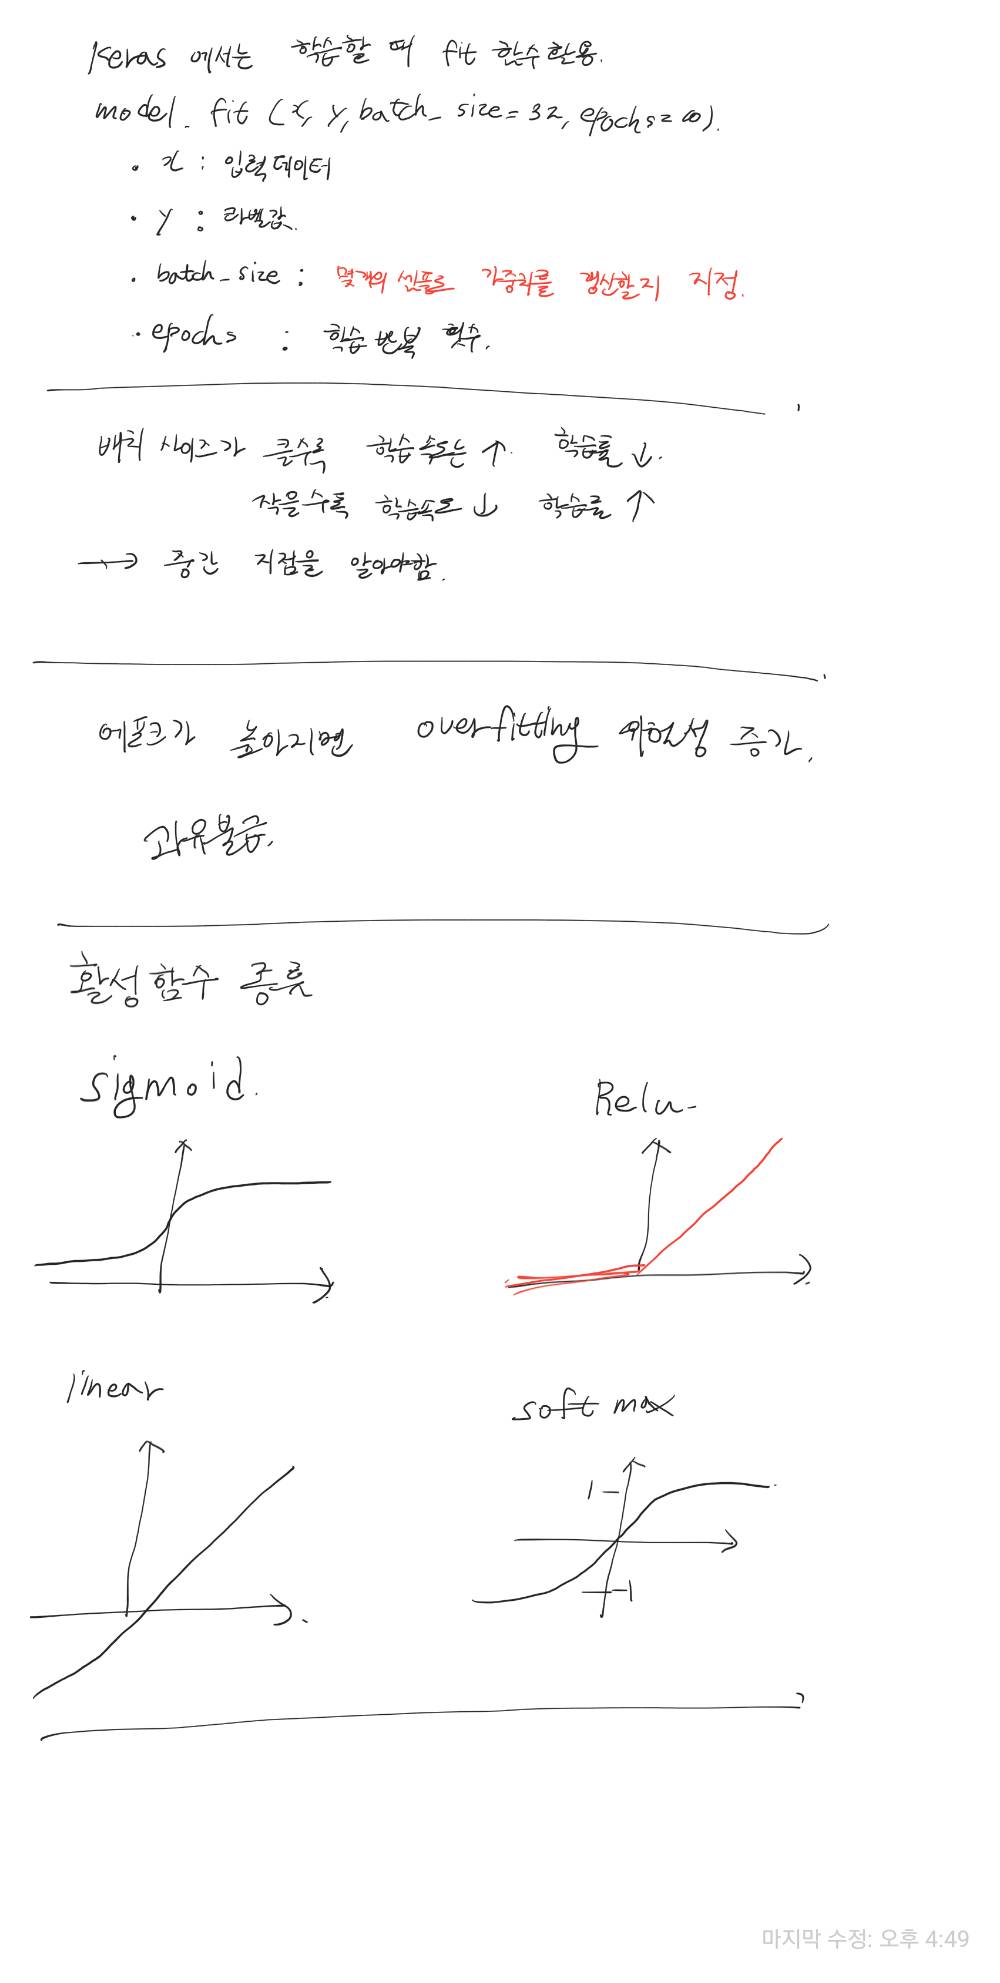 Keras 에서는 학습할 때 fit 함수활용.
model. fit (x, y, batch_size = 32, epochs = ∞).
• x : 입력데이터
• y : 라벨값.
• batch_size : 몇개의 샘플로 가중치를 갱신할지 지정.
• epochs : 학습 반복 횟수.
배치 사이즈가 클수록 학습속도는 ↑. 학습률 ↓.
작을수록 학습속도 ↓ 학습률 ↑
→ 중간 지점을 알아야함.
에포크가 높아지면 overfitting 위험성 증가.
과유불급.
활성함수 종류
sigmoid.
Relu.
linear
softmax
1
-1
마지막 수정: 오후 4:49